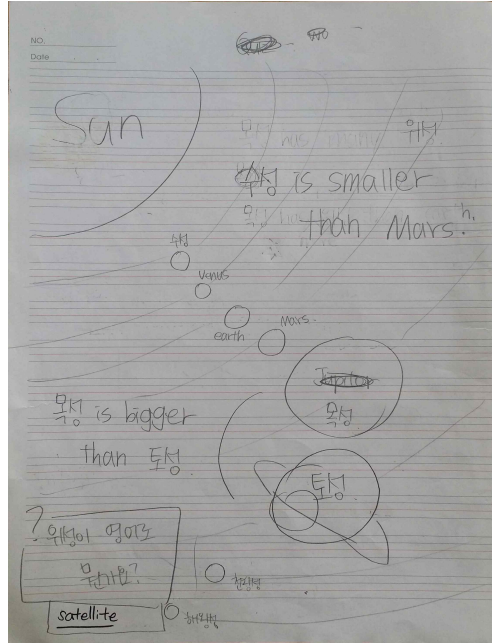 NO.
Date
NO
Sun
위성
수성 is smaller
than Mars.
수성
Venus
earth
Mars.
Jupiter
목성
목성 is bigger
than 토성.
토성
? 위성이 영어로
뭔가요?
satellite
천왕성
해왕성